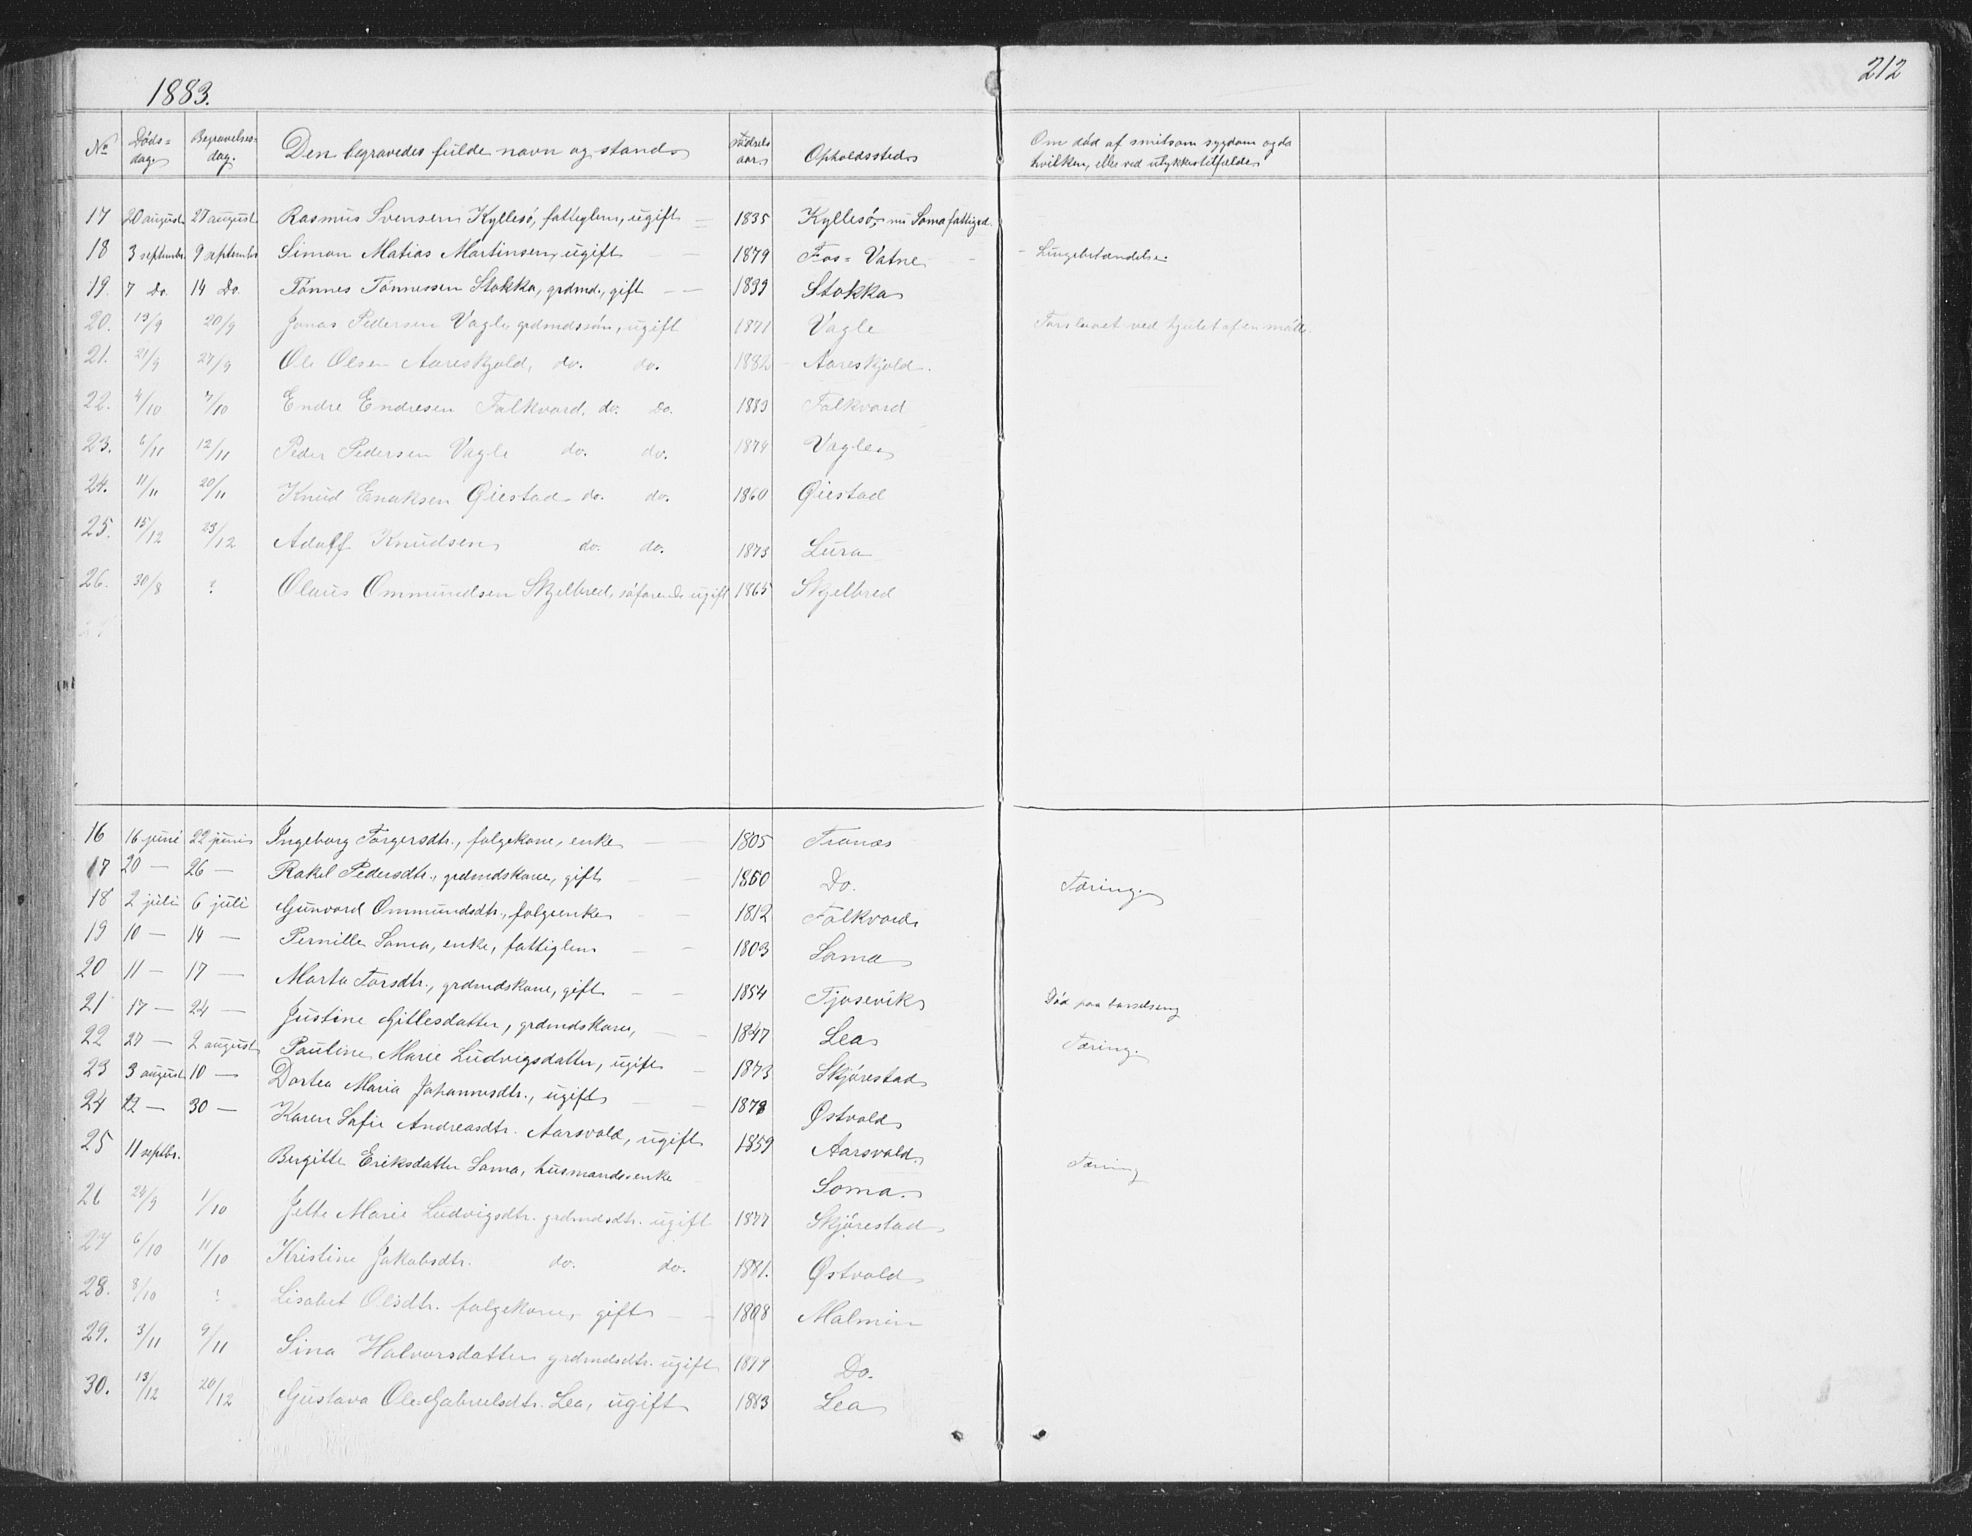 1883.
212
No Døds= dag. Begravelses= dag. Den begravedes fulde navn og stand Fødsels aar. Opholdssted Om død af smitsom sygdom og da hvilken, eller ved ulykkestilfælde
17 20 august 27 august Rasmus Svensen Kyllesø, fattiglem, ugift 1835 Kyllesø, nu Soma fattigd.
18 3 septembr. 9 septembr Simon Matias Martinsen, ugift 1879 Fos= Vatne Lungebetændelse.
19. 7 Do. 14 Do. Tønnes Tønnessen Stokka, grdmd., gift 1839 Stokka
20. 13/9 20/9 Jonas Pedersen Vagle, grdmdssøn, ugift 1871 Vagle ved hjulet af en mølle
21. 21/9 27/9 Ole Olsen Aareskjold, do. do. 1882 Aareskjold.
22. 4/10 7/10 Endre Endresen Folkvord, do. Do. 1883 Folkvord
23. 6/11 12/11 Peder Pedersen Vagle do. do. 1874 Vagle
24. 11/11 20/11 Knud Enoksen Øiestad do. do. 1860 Øiestad
25. 15/12 23/12 Adolf Knudsen do. do. 1873 Lura
26. 30/8 ? Olaus Ommundsen Skjelbred, søfarende ugift 1865 Skjelbred
16 16 juni 22 juni Ingeborg Torgersdtr., folgekone, enke 1805 Tronæs
17 20 — 26 — Rakel Pedersdtr., grdmdskone, gift 1850 Do. Tæring.
18 2 juli 6 juli Gunvord Ommundsdtr., folgeenke 1812 Folkvord
19 10 — 14 — Pernille Soma, enke, fattiglem 1803 Soma
20 11 — 17 — Marta Torsdtr., grdmdskone, gift 1854 Tjosevik Død paa barselseng
21 17 — 24 — Justine Gillesdatter, grdmdskone, 1847 Lea Tæring.
22 27 — 2 august Pauline Marie Ludvigsdatter, ugift 1873 Skjørestad
23 3 august 10 — Dortea Maria Johannesdtr., ugift 1878 Østvold
24 12 — 30 — Karen Sofie Andreasdtr. Aarsvold, ugift 1859 Aarsvold. Tæring
25 11 septbr. Bergitte Eriksdatter Soma, husmandsenke Soma.
26 24/9 1/10 Jette Marie Ludvigsdtr. grdmdsdtr. ugift 1877 Skjørestad
27 6/10 11/10 Kristine Jakobsdtr. do. do. 1881. Østvold
28. 8/10 ? Lisabet Olsdtr. folgekone, gift 1808 Malmin
29. 3/11 9/11 Sina Halvorsdatter grdmdsdtr. ugift 1879 Do.
30. 13/12 20/12 Gustava Ole Gabrielsdtr. Lea, ugift 1883 Lea